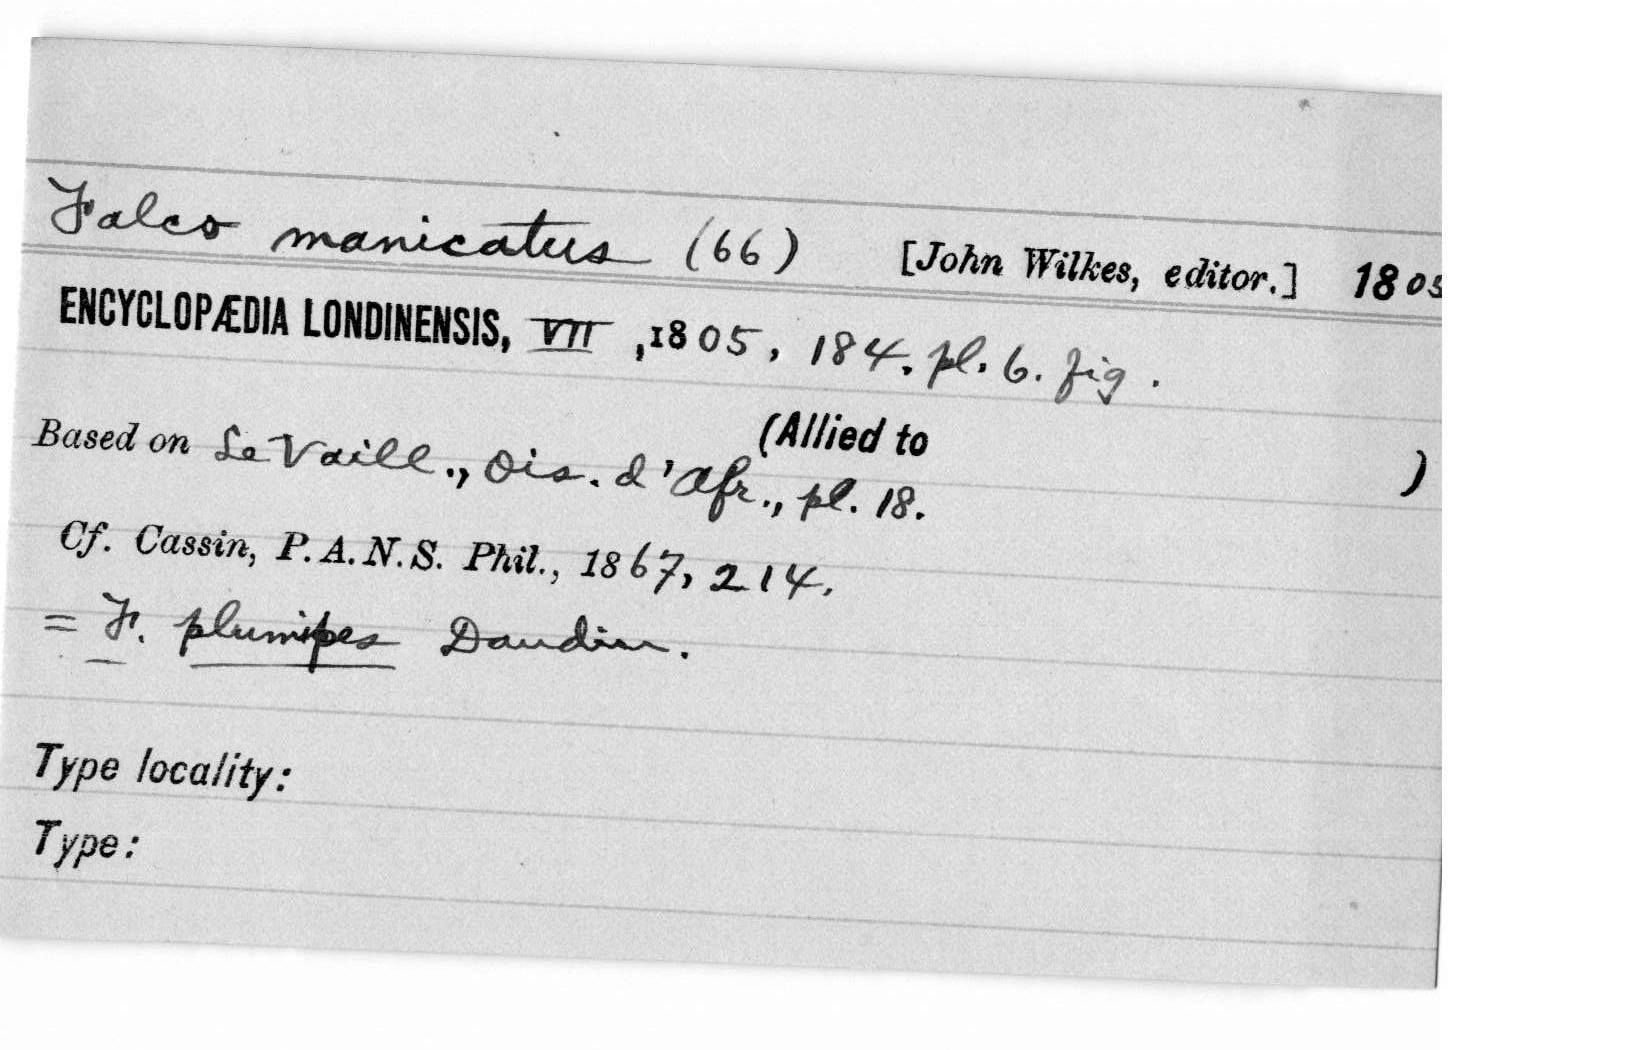 Falco manicatus (66) [John Wilkes, editor.] 1805
ENCYCLOPÆDIA LONDINENSIS, VII, 1805, 184. pl. 6. fig.
(Allied to )
Based on Le Vaill., Ois. d'Afr., pl. 18.
Cf. Cassin, P.A.N.S. Phil., 1867, 214.
= F. plumipes Daudin.
Type locality:
Type: